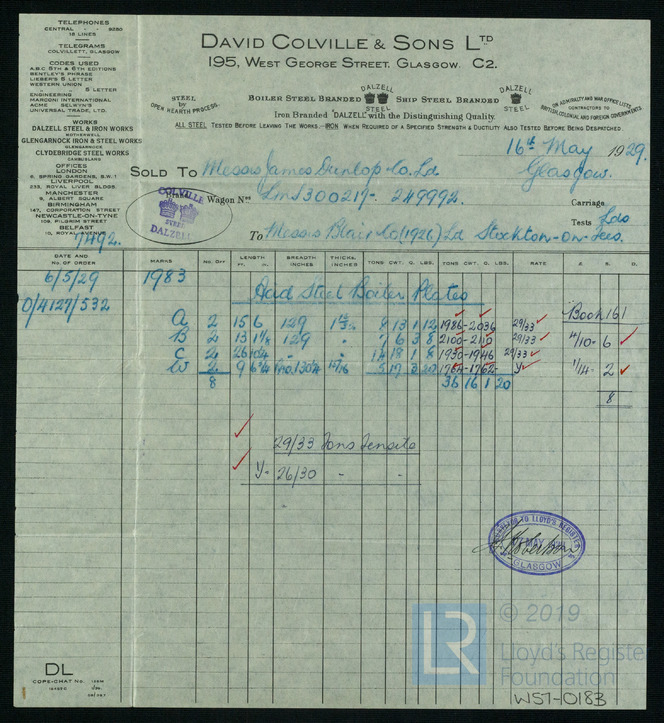 TELEPHONES
CENTRAL - - 5280
18 LINES
TELEGRAMS
COLVILLETT, GLASGOW
CODES USED
A.B.C 5TH & 6TH EDITIONS
BENTLEY'S PHRASE
LIEBER'S 5 LETTER
WESTERN UNION
5 LETTER
ENGINEERING
MARCONI INTERNATIONAL
ACME SELWYN'S
UNIVERSAL TRADE. LTD.
WORKS
DALZELL STEEL & IRON WORKS
MOTHERWELL
GLENGARNOCK IRON & STEEL WORKS
GLENGARNOCK
CLYDEBRIDGE STEEL WORKS
CAMBUSLANG
OFFICES
LONDON
6, SPRING GARDENS, S.W.1
LIVERPOOL
233, ROYAL LIVER BLDGS.
MANCHESTER
9, ALBERT SQUARE
BIRMINGHAM
147, CORPORATION STREET
NEWCASTLE-ON-TYNE
109, PILGRIM STREET
BELFAST
10, ROYAL AVENUE
7492.
DAVID COLVILLE & SONS LTD
195, WEST GEORGE STREET. GLASGOW. C2.
STEEL
by
OPEN HEARTH PROCESS.
BOILER STEEL BRANDED DALZELL STEEL
SHIP STEEL BRANDED DALZELL STEEL
ON ADMIRALTY AND WAR OFFICE LISTS
CONTRACTORS TO
BRITISH, COLONIAL AND FOREIGN GOVERNMENTS
Iron Branded "DALZELL" with the Distinguishing Quality.
ALL STEEL TESTED BEFORE LEAVING THE WORKS.—IRON WHEN REQUIRED OF A SPECIFIED STRENGTH & DUCTILITY ALSO TESTED BEFORE BEING DESPATCHED.
16th May 1929.
SOLD TO Messrs James Dunlop Co. Ld Glasgow.
Wagon Nos LMS 300217- 249992
Carriage
COLVILLE
STEEL
DALZELL
Tests Lois
To Messrs Blair Co (1926) Ld Stockton-on-Tees.
DATE AND No. OF ORDER MARKS No. OFF LENGTH FT. IN. BREADTH INCHES THICKS. INCHES TONS CWT. Q. LBS. TONS CWT. Q. LBS. RATE
6/5/29 1983
0/4127/532
Acid Steel Boiler Plates
Book 161
A 2 15 6 129 8 13 1 12 1986-2036 29/33
B 2 13 1 1/8 129 " 7 6 3 8 2100-2110 29/33 4/10- 6
C 2 26 " " 14 18 1 8 1930-1946 29/33
W 2 9 5 17 3 20 Y 1/14- 2
8 36 16 1 20 8
29/33 Tons Tensile
Y- 26/30 - -
SURVEYOR TO LLOYD'S REGISTER
MAY 1929
GLASGOW
DL
COPE-CHAT No.
© 2019
LR
Lloyd's Register
Foundation
WST-1018B